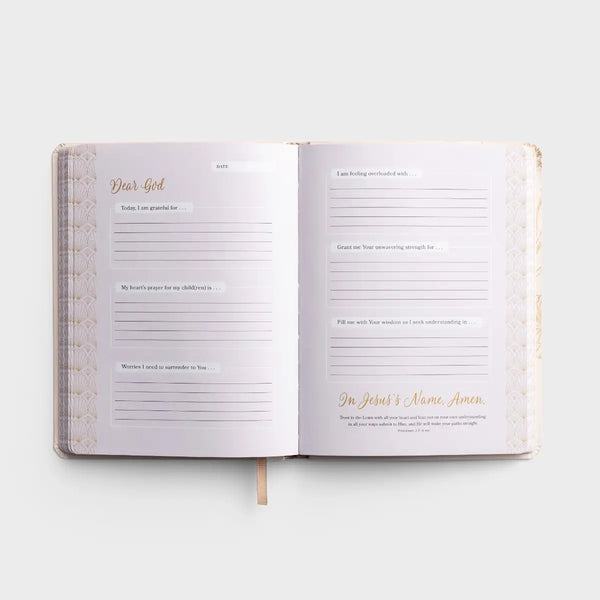 DATE:
Dear God
Today, I am grateful for . . .
My heart's prayer for my child(ren) is . . .
Worries I need to surrender to You . . .
I am feeling overloaded with . . .
Grant me Your unwavering strength for . . .
Fill me with Your wisdom as I seek understanding in . . .
In Jesus's Name, Amen.
Trust in the LORD with all your heart and lean not on your own understanding;
in all your ways submit to Him, and He will make your paths straight.